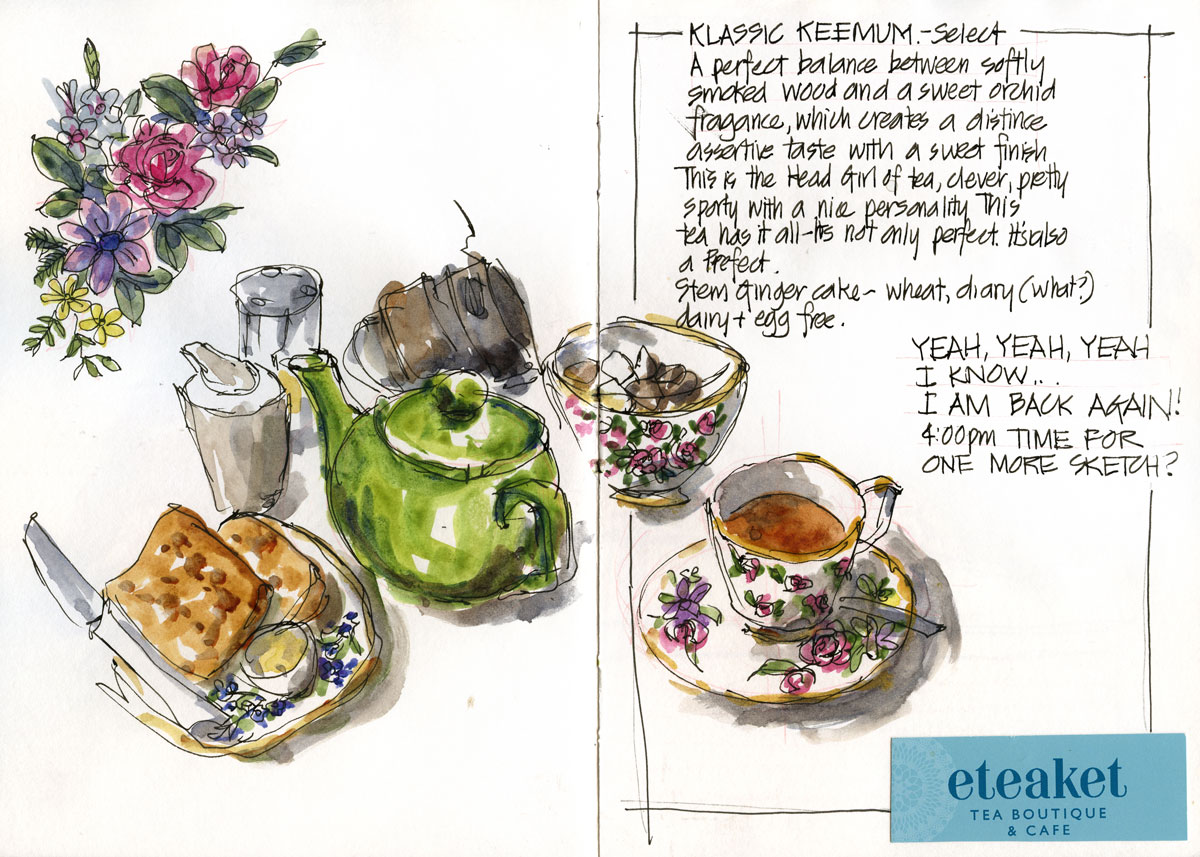 KLASSIC KEEMUM.-Select
A perfect balance between softly
smoked wood and a sweet orchid
fragance, which creates a distince
assertive taste with a sweet finish
This is the Head Girl of tea, clever, pretty
sporty with a nice personality This
tea has it all-It's not only perfect. It's also
a Prefect.
Stem Ginger cake- wheat, diary (what?)
dairy + egg free.
YEAH, YEAH, YEAH
I KNOW...
I AM BACK AGAIN!
4:00pm TIME FOR
ONE MORE SKETCH?
eteaket
TEA BOUTIQUE
& CAFE